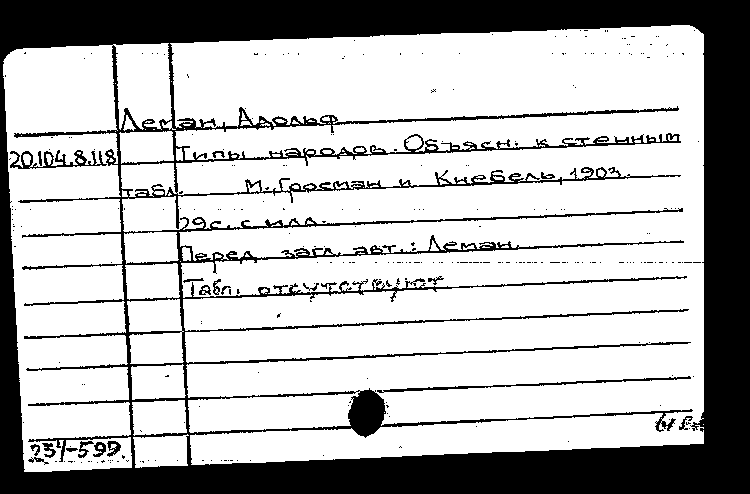 Леман, Адольф
20.104.8.118 Типы народов. Объясн. к стенным
табл. М., Гросман и Кнебель, 1903.
29с. с илл.
Перед загл. авт.: Леман.
Табл. отсутствуют
234-599.